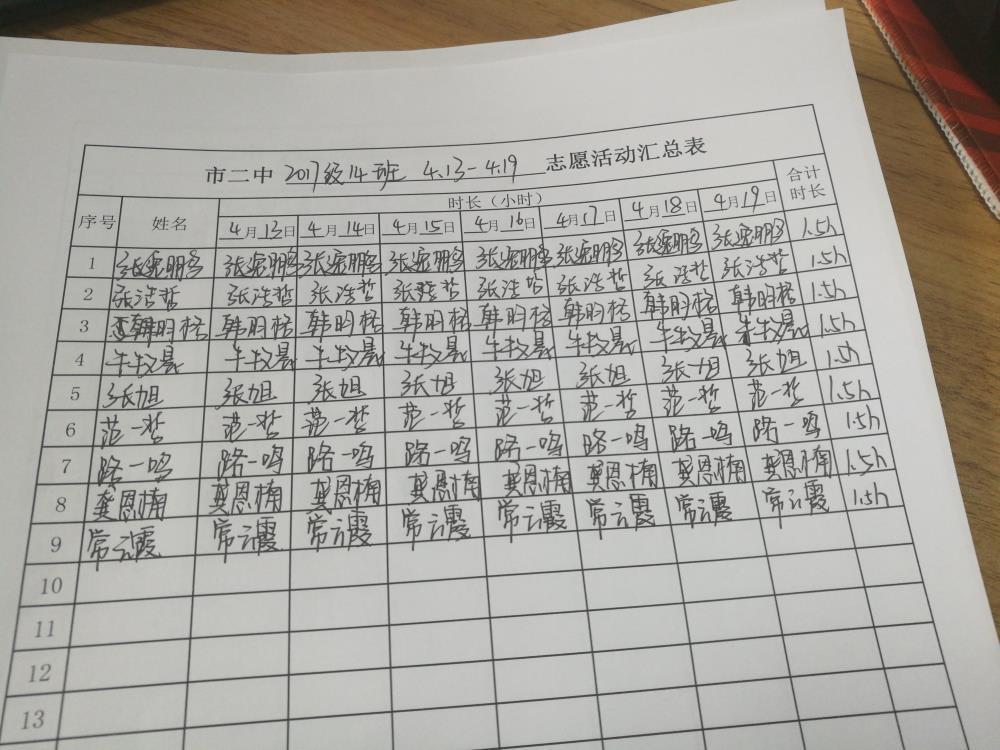 市二中 2017级14班 4.13-4.19 志愿活动汇总表
序号 姓名 时长（小时） 合计时长
4月13日 4月14日 4月15日 4月16日 4月17日 4月18日 4月19日
1 张宪鹏 张宪鹏 张宪鹏 张宪鹏 张宪鹏 张宪鹏 张宪鹏 张宪鹏 1.5h
2 张浩哲 张浩哲 张浩哲 张浩哲 张浩哲 张浩哲 张浩哲 张浩哲 1.5h
3 韩明格 韩明格 韩明格 韩明格 韩明格 韩明格 韩明格 韩明格 1.5h
4 牛牧晨 牛牧晨 牛牧晨 牛牧晨 牛牧晨 牛牧晨 牛牧晨 牛牧晨 1.5h
5 张旭 张旭 张旭 张旭 张旭 张旭 张旭 张旭 1.5h
6 范一哲 范一哲 范一哲 范一哲 范一哲 范一哲 范一哲 范一哲 1.5h
7 路一鸣 路一鸣 路一鸣 路一鸣 路一鸣 路一鸣 路一鸣 路一鸣 1.5h
8 龚恩楠 龚恩楠 龚恩楠 龚恩楠 龚恩楠 龚恩楠 龚恩楠 龚恩楠 1.5h
9 常云霞 常云霞 常云霞 常云霞 常云霞 常云霞 常云霞 常云霞
10
11
12
13